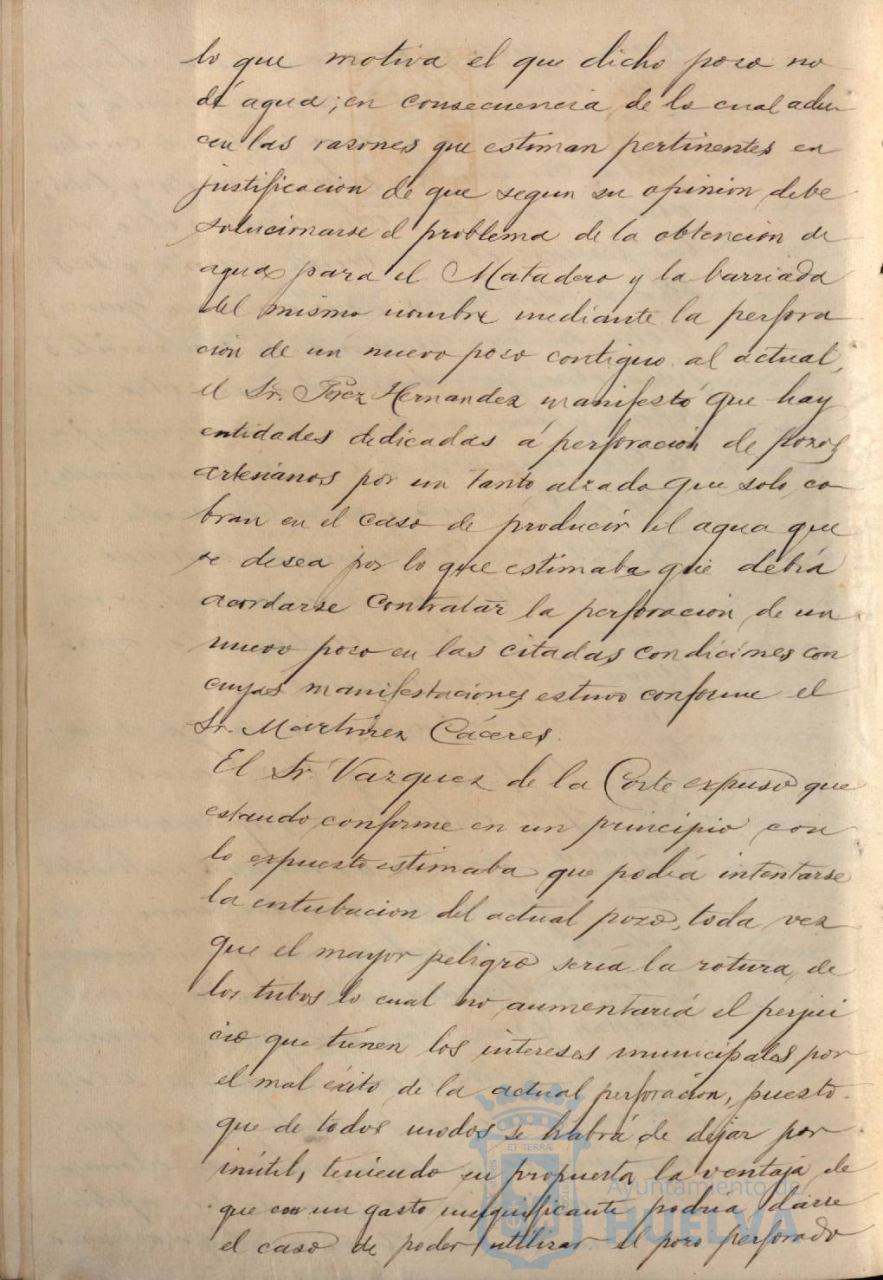 lo que motiva el que dicho poso no
dé agua; en consecuencia de lo cual adu
cen las rasones que estiman pertinentes en
justificacion de que segun su opinion debe
solucionarse el problema de la obtencion de
agua para el Matadero y la barriada
del mismo nombre mediante la perfora
ción de un nuevo poso contiguo al actual,
el Sr. Pérez Hernandez manifestó que hay
entidades dedicadas á perforacion de pozos
artesianos por un tanto alzado que solo co
bran en el caso de producir el agua que
se desea por lo que estimaba que debía
acordarse contratar la perforacion de un
nuevo poso en las citadas condiciones con
cuyas manifestaciones estuvo conforme el
Sr. Martinez Cáceres.
El Sr. Vazquez de la Corte expuso que
estando conforme en un principio con
lo expuesto estimaba que podía intentarse
la entubacion del actual pozo, toda vez
que el mayor peligro sería la rotura de
los tubos lo cual no aumentaría el perjui
cio que tienen los intereses municipales por
el mal éxito de la actual perforación, puesto
que de todos modos se habrá de dejar por
inútil, teniendo su propuesta la ventaja de
que con un gasto insignificante podría darse
el caso de poder utilizar el pozo perforado
ET TERRÆ
Ayuntamiento de
HUELVA